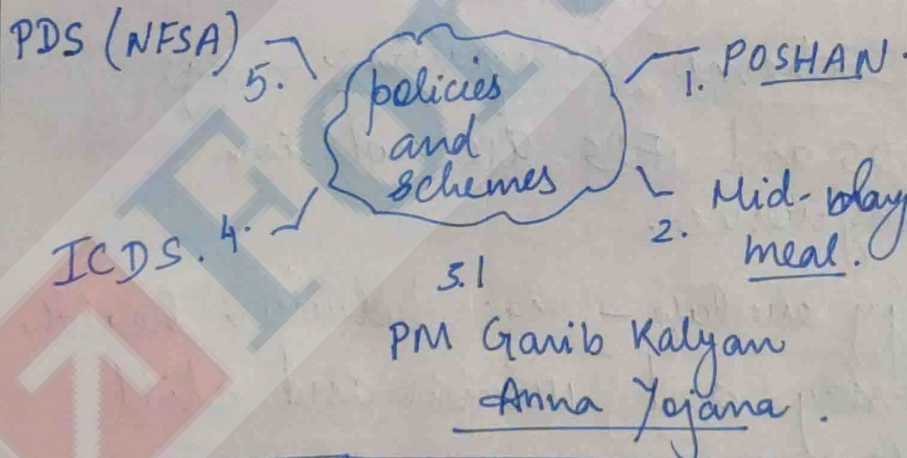 PDS (NFSA)
5.
policies
and
schemes
1. POSHAN.
2. Mid-day
meal.
ICDS. 4.
3.|
PM Garib Kalyan
Anna Yojana.